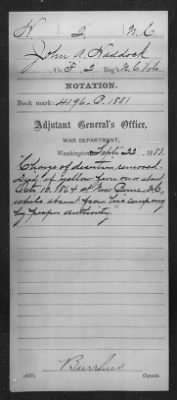 H 2 N.C.
John A. Haddock
Co. F, 2 Reg't N.C. Vols
NOTATION.
Book mark: 4196. B. 1881
Adjutant General's Office,
WAR DEPARTMENT,
Washington, Sept. 22, 1883.
"Charge of desertion removed.
died of yellow fever on or about
Octo 10, 1864 at New Berne, N.C.
while absent from his company
by proper authority."
Burrhus
Copyist.